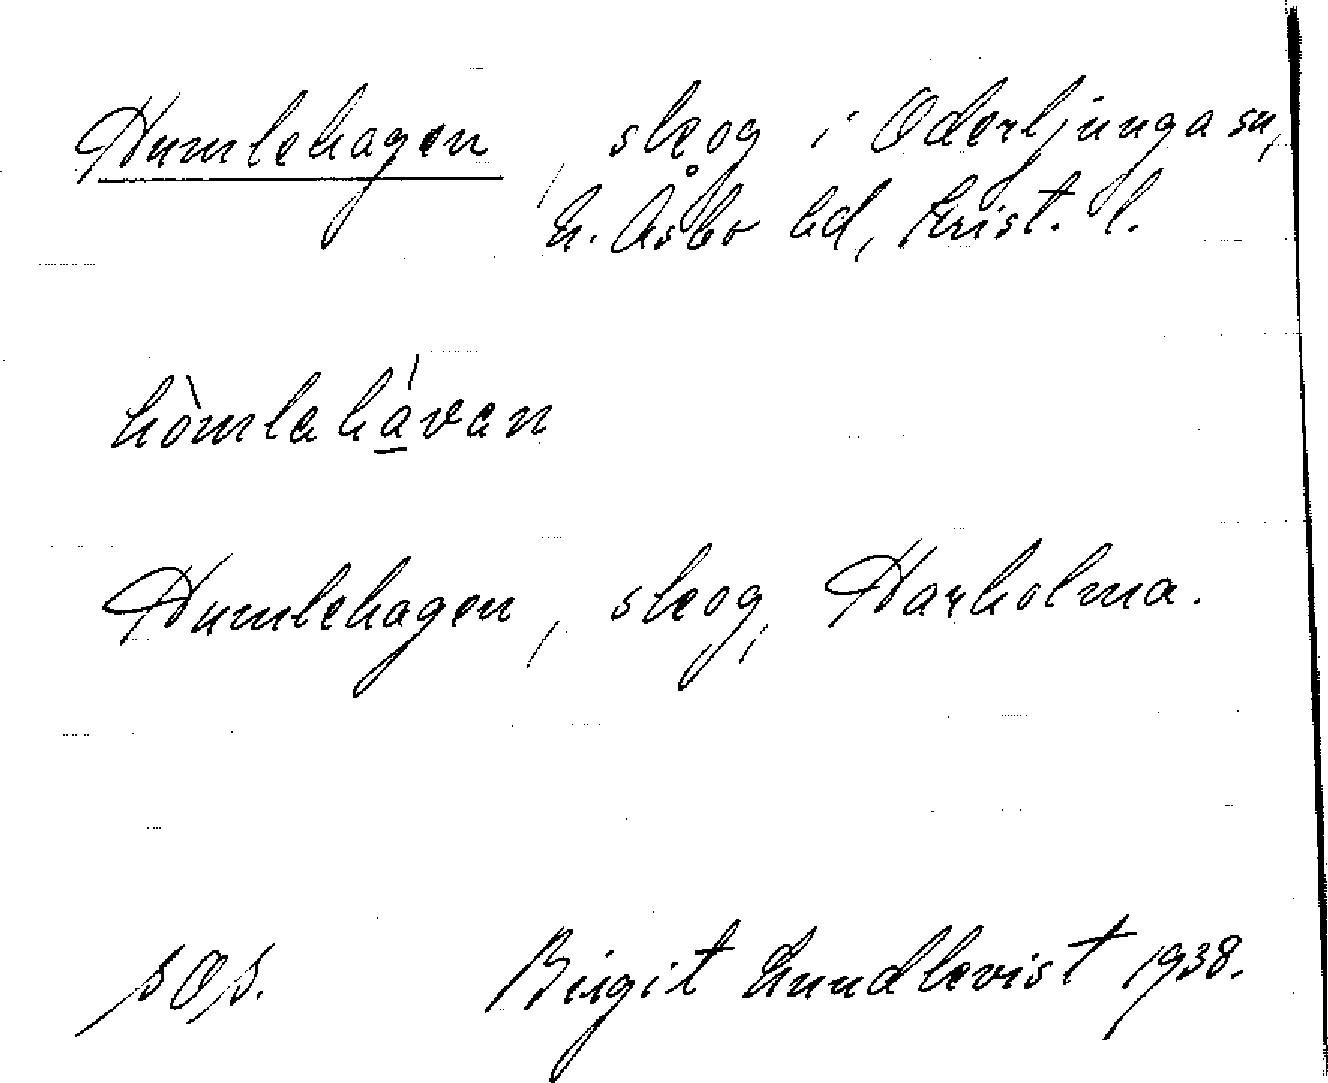 Humlehagen, skog i Oderljunga sn,
N. Åsbo hd, Krist. l.
hòmlahávan
Humlehagen, skog, Harholma.
Birgit Lundkvist 1938.